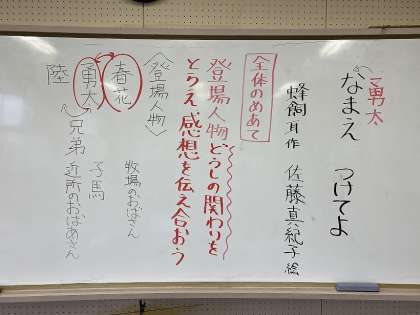 勇太
なまえ つけてよ
蜂飼耳作 佐藤真紀子 絵
全体のめあて
登場人物どうしの関わりを
とらえ、感想を伝え合おう
〈登場人物〉
春花 牧場のおばさん
勇太 子馬
陸 兄弟 近所のおばあさん